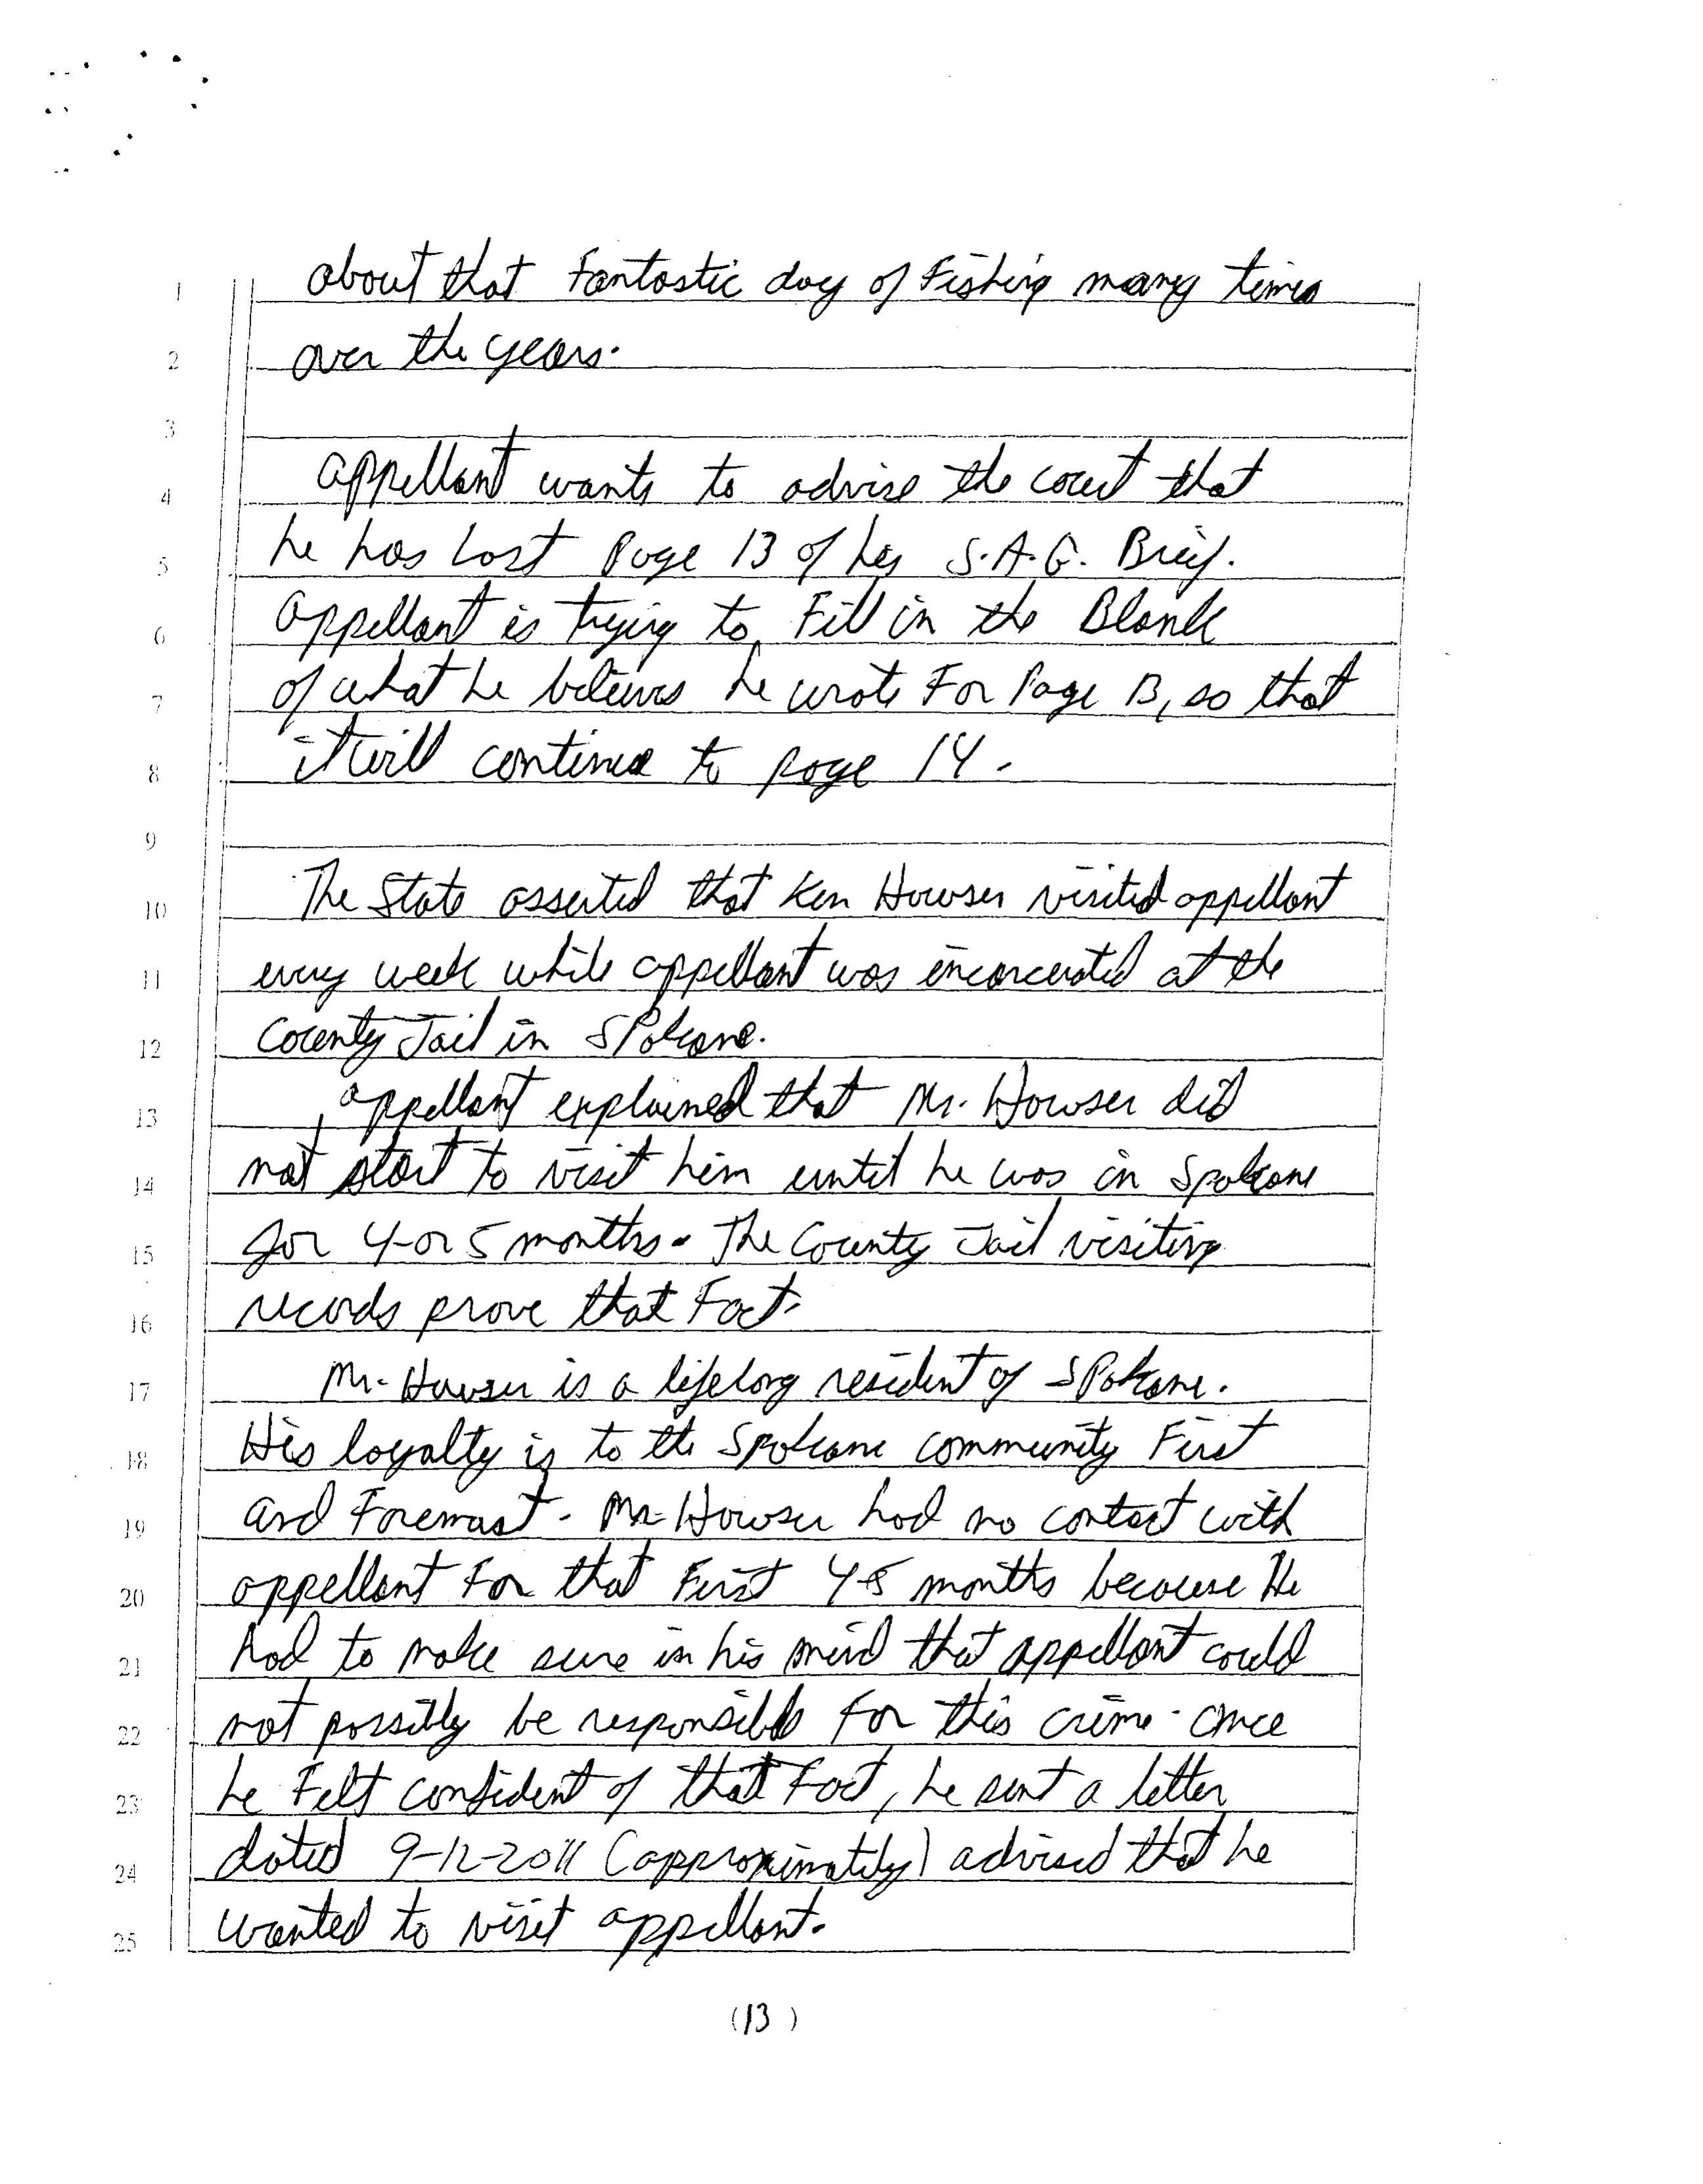 1 about that Fantastic day of Fishing many times
2 over the years.
3
4 appellant wants to advise the court that
5 he has lost Page 13 of his S.A.G. Brief.
6 appellant is trying to Fill in the Blank
7 of what he believes he wrote For Page 13, so that
8 it will continue to page 14.
9
10 The State asserted that Ken Howser visited appellant
11 every week while appellant was incarcerated at the
12 County Jail in SPokane.
13 appellant explained that Mr. Howser did
14 not start to visit him until he was in Spokane
15 for 4-or 5 months. The County Jail visiting
16 records prove that Fact.
17 Mr. Howser is a lifelong resident of SPokane.
18 His loyalty is to the Spokane community First
19 and Foremost. Mr. Howser had no contact with
20 appellant For that First 4-5 months because He
21 had to make sure in his mind that appellant could
22 not possibly be responsible For this crime. Once
23 he Felt confident of that Fact, he sent a letter
24 dated 9-12-2011 (approximately) advised that he
25 wanted to visit appellant.
(13)